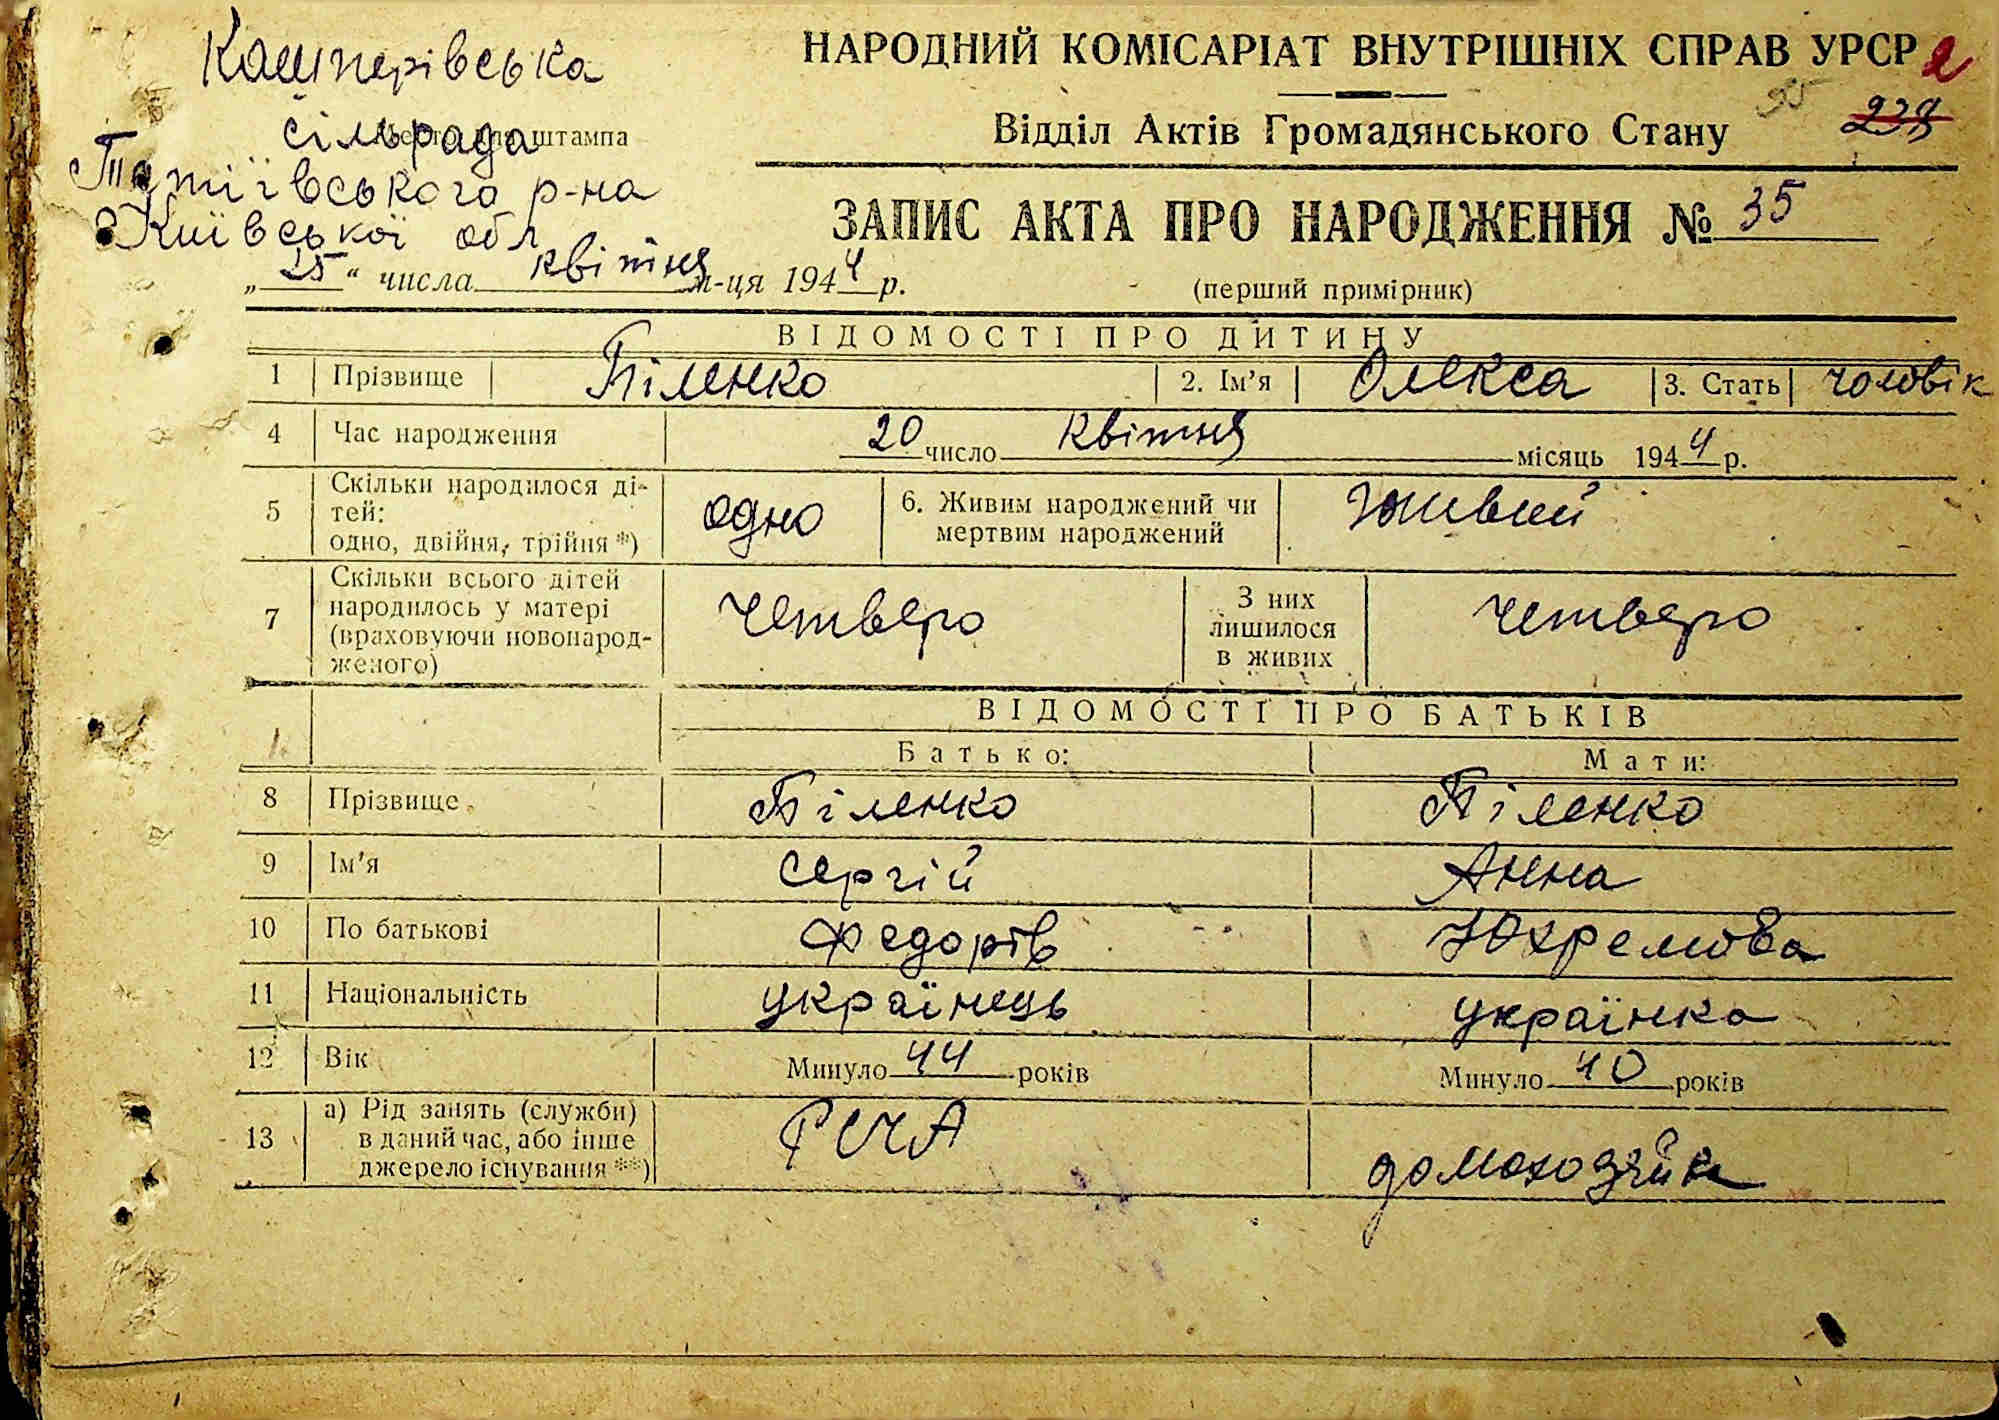 Кашперівська
НАРОДНИЙ КОМІСАРІАТ ВНУТРІШНІХ СПРАВ УРСР 2
сільрада
штампа
Відділ Актів Громадянського Стану
Тетіївського р-на
Київської обл
ЗАПИС АКТА ПРО НАРОДЖЕННЯ № 35
„25“ числа квітня м-ця 1944 р.
(перший примірник)
ВІДОМОСТІ ПРО ДИТИНУ
1 Прізвище Біленко 2. Ім’я Олекса 3. Стать чоловік
4 Час народження 20 число квітня місяць 1944 р.
5 Скільки народилося ді-
тей:
одно, двійня, трійня *) одно 6. Живим народжений чи
мертвим народжений Живий
7 Скільки всього дітей
народилось у матері
(враховуючи новонарод-
женого) четверо З них
лишилося
в живих четверо
ВІДОМОСТІ ПРО БАТЬКІВ
Батько: Мати:
8 Прізвище Біленко Біленко
9 Ім’я Сергій Анна
10 По батькові Федорів Юхремова
11 Національність українець українка
12 Вік Минуло 44 років Минуло 40 років
13 а) Рід занять (служби)
в даний час, або інше
джерело існування **) РСЧА домохозяйк